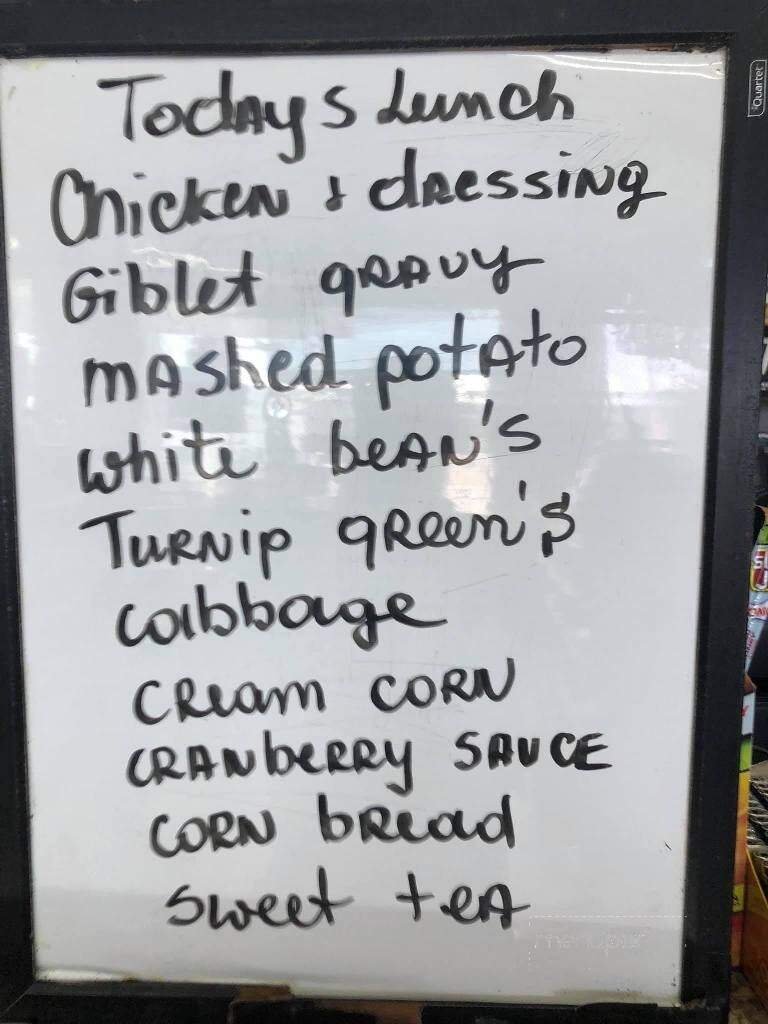 Todays Lunch
Chicken & dressing
Giblet gravy
mashed potato
white bean's
Turnip green's
cabbage
cream corn
cranberry sauce
corn bread
sweet tea
Quartet